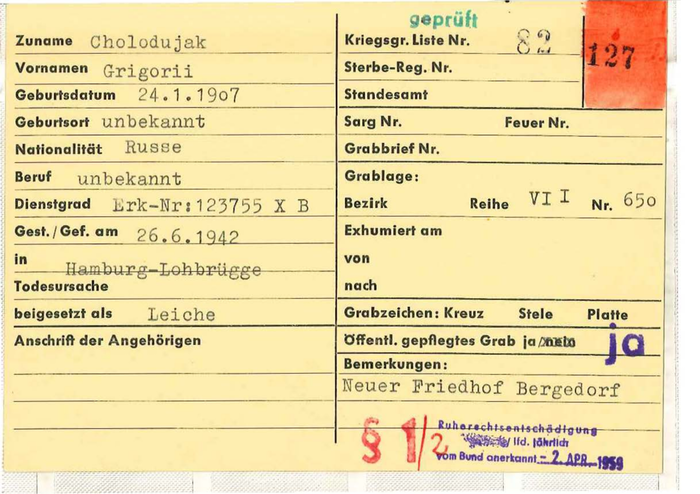 geprüft
Zuname Cholodujak
Vornamen Grigorii
Geburtsdatum 24.1.19o7
Geburtsort unbekannt
Nationalität Russe
Beruf unbekannt
Dienstgrad Erk-Nr:123755 X B
Gest./Gef. am 26.6.1942
in Hamburg-Lohbrügge
Todesursache
beigesetzt als Leiche
Anschrift der Angehörigen
Kriegsgr. Liste Nr. 82
127
Sterbe-Reg. Nr.
Standesamt
Sarg Nr. Feuer Nr.
Grabbrief Nr.
Grablage:
Bezirk Reihe VII Nr. 65o
Exhumiert am
von
nach
Grabzeichen: Kreuz Stele Platte
Öffentl. gepflegtes Grab ja/nein ja
Bemerkungen:
Neuer Friedhof Bergedorf
§ 1/2
Ruherechtsentschädigung
lfd. jährlich
vom Bund anerkannt - 2. APR. 1959